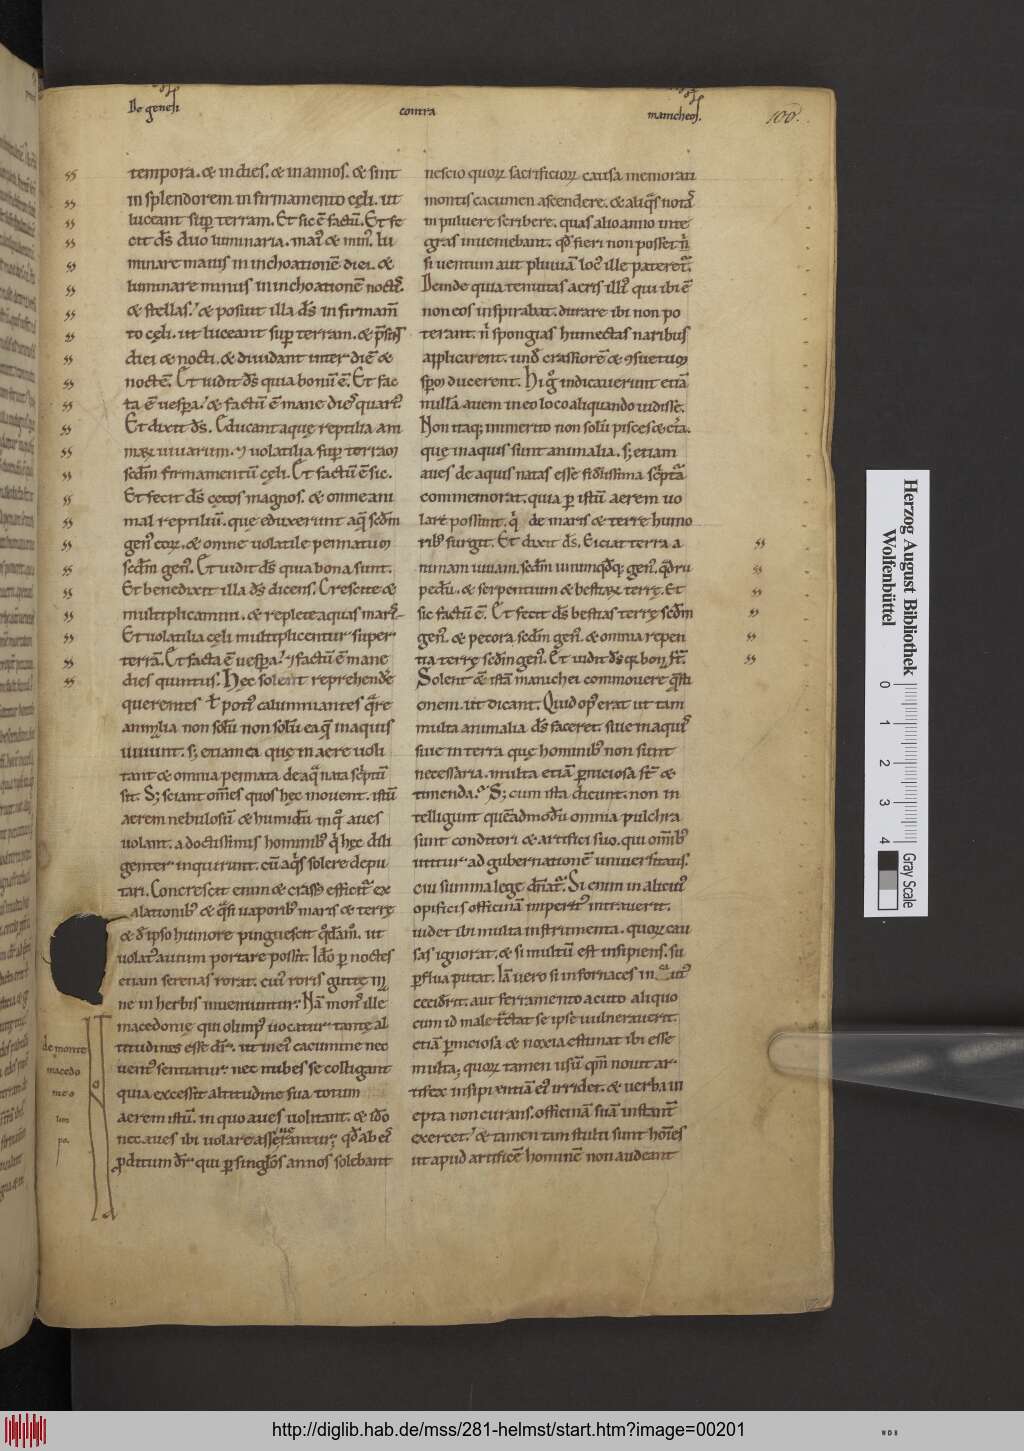 De genesi contra manicheos. 100.
tempora. & in dies. & in annos. & sint
in splendorem in firmamento cęli. ut
luceant sup̄ terram. Et sic ē factū. Et fe
cit ds̄ duo luminaria. mai᷒ & min᷒. lu
minare maius in inchoationē diei. &
luminare minus in inchoationē nocti᷒.
& stellas. & posuit illa ds̄ in firmam̄
to cęli. ut luceant sup̄ terram. & p̄sint
diei & nocti. & diuidant inter diē &
noctē. Et uidit ds̄ quia bonū ē. Et fac
ta ē uesp̄a. & factū ē mane dies quart᷒.
Et dixit ds̄. Educant aquę reptilia ani
maꝝ uiuarum. & uolatilia sup̄ terram
scdm̄ firmamentū cęli. Et factū ē sic.
Et fecit ds̄ cetos magnos. & omne ani
mal reptiliū. que eduxerunt aq̄ scdm̄
gen᷒ eoꝝ. & omne uolatile pennatum
scdm̄ gen᷒. Et uidit ds̄ quia bona sunt.
Et benedixit illa ds̄ dicens. Crescite &
multiplicamini. & replete aquas mari᷒
Et uolatilia cęli multiplicentur super
terrā. Et facta ē uesp̄a. & factū ē mane
dies quintus. Hec solent reprehendere
querentes ł poti᷒ calumniantes q̄re
animalia non solū non solū ea q̄ in aquis
uiuunt. s; etiam ea quę in aere uoli
tant & omnia pennata de aq̄ nata sc̄ptū
sit. S; sciant om̄es quos hęc mouent. istū
aerem nebulosū & humidū in q̊ aues
uolant. a doctissimis hominib᷒ q̄ hęc dili
genter inquirunt. cū aq̄s solere depu
tari. Concrescit enim & crass᷒ efficit̄ ex
alationib᷒ & q̄si uaporib᷒ maris & terrę
& d̄ ipso humore pinguescit q̊dām. ut
uolat᷒ auium portare possit. Idō p̄ noctes
etiam serenas rorat. cui᷒ roris guttę m
ne in herbis inueniuntur. Nā mons᷒ ille
macedonię qui olimp᷒ uocatur tantę al
titudines esse dr̄. ut in ei᷒ cacumine nec
uent᷒ sentiatur. nec nubes se colligant
quia excessit altitudine sua totum
aerem istū. in quo aues uolitant. & idō
nec aues ibi uolare asserantur; qd̄ ab ei᷒
p̄ditum dr̄ qui p̄ singłos annos solebant
de monte
macedo
nie o
lim
po.
nescio quoꝝ sacrificioꝝ causa memorati
montis cacumen ascendere. & aliq̄s notas
in puluere scribere. quas alio anno inte
gras inueniebant. qd̄ fieri non posset n̄
si uentum aut pluuiā loc᷒ ille pateret̄.
Deinde quia tenuitas aeris illi᷒ qui ibi ē
non eos inspirabat. durare ibi non po
terant. n̄ spongias humectas naribus
applicarent. und̄ crassiorē & ꝯsuetum
sp̄m ducerent. Hi ḡ indicauerunt etiā
nullā auem in eo loco aliquando uidisse.
Non itaq; immerito non solū pisces & cetā.
quę in aquis sunt animalia. s; etiam
aues de aquis natas esse fidelissima sc̄ptā
commemorat. quia p̄ istū aerem uo
lare possunt. q̄ de maris & terre humo
rib᷒ surgit. Et dixit ds̄. Eiciat terra a
nimam uiuam. scdm̄ unumqd̄q; gen᷒. q̄dru
pedū. & serpentium & bestiaꝝ terrę. Et
sic factū ē. Et fecit ds̄ bestias terrę scdm̄
gen᷒. & pecora scdm̄ gen᷒. & omnia repen
tia terrę scdm̄ gen᷒. Et uidit ds̄ q; bona st̄.
Solent & istā manichei commouere q̄sti
onem. ut dicant. Quid op᷒ erat ut tam
multa animalia ds̄ faceret. siue in aquis
siue in terra quę hominib᷒ non sunt
necessaria. multa etiā p̄niciosa st̄ &
timenda. S; cum ista dicunt. non in
telligunt quēadmodū omnia pulchra
sunt conditori & artifici suo. qui om̄ib᷒
utitur ad gubernationē uniuersitatis.
cui summa lege dn̄at̄. Si enim in alicui᷒
opificis officinā imperit᷒ intrauerit.
uidet ibi multa instrumenta. quoꝝ cau
sas ignorat. & si multū est insipiens. su
p̄flua putat. Iā uero si in fornaces in caut᷒
ceciderit. aut ferramento acuto aliquo
cum id male tractat se ipse uulnerauerit.
etiā p̄niciosa & noxia estimat ibi esse
multa; quoꝝ tamen usū qm̄ nouit ar
tifex insipientiā ei᷒ irridet. & uerba in
epta non curans. officinā suā instant̄
exercet. & tamen tam stulti sunt hoīes
ut apud artificē hominē non audeant
Herzog August Bibliothek
Wolfenbüttel
0 1 2 3 4
Gray Scale
http://diglib.hab.de/mss/281-helmst/start.htm?image=00201